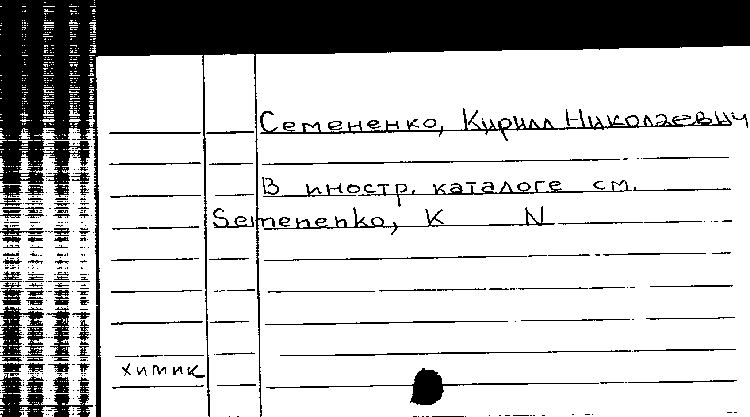 Семененко, Кирилл Николаевич
В иностр. каталоге см.
Semenenko, K N
химик